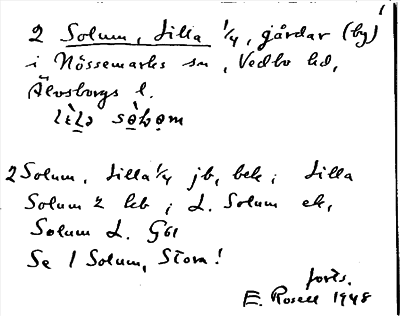 1
2 Solum, Lilla 1/4, gårdar (by)
i Nössemarks sn, Vedbo hd,
Älvsborgs l.
2 Solum, Lilla 1/4 jb, bek; Lilla
Solum 2 hb; L. Solum ek,
Solum L. G61
Se 1 Solum, Stora!
forts.
E. Rosell 1948